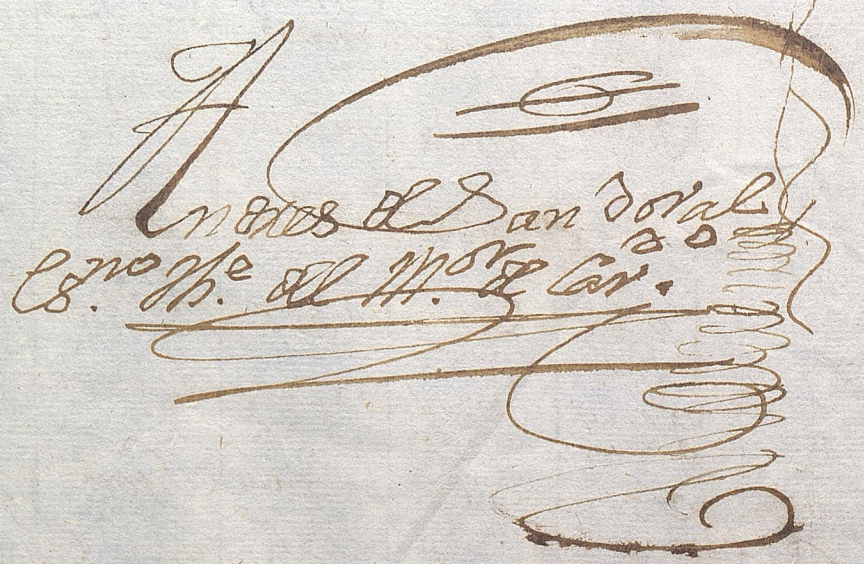 Andres de Sandoval
Es.no Th.e del M.or de Car.